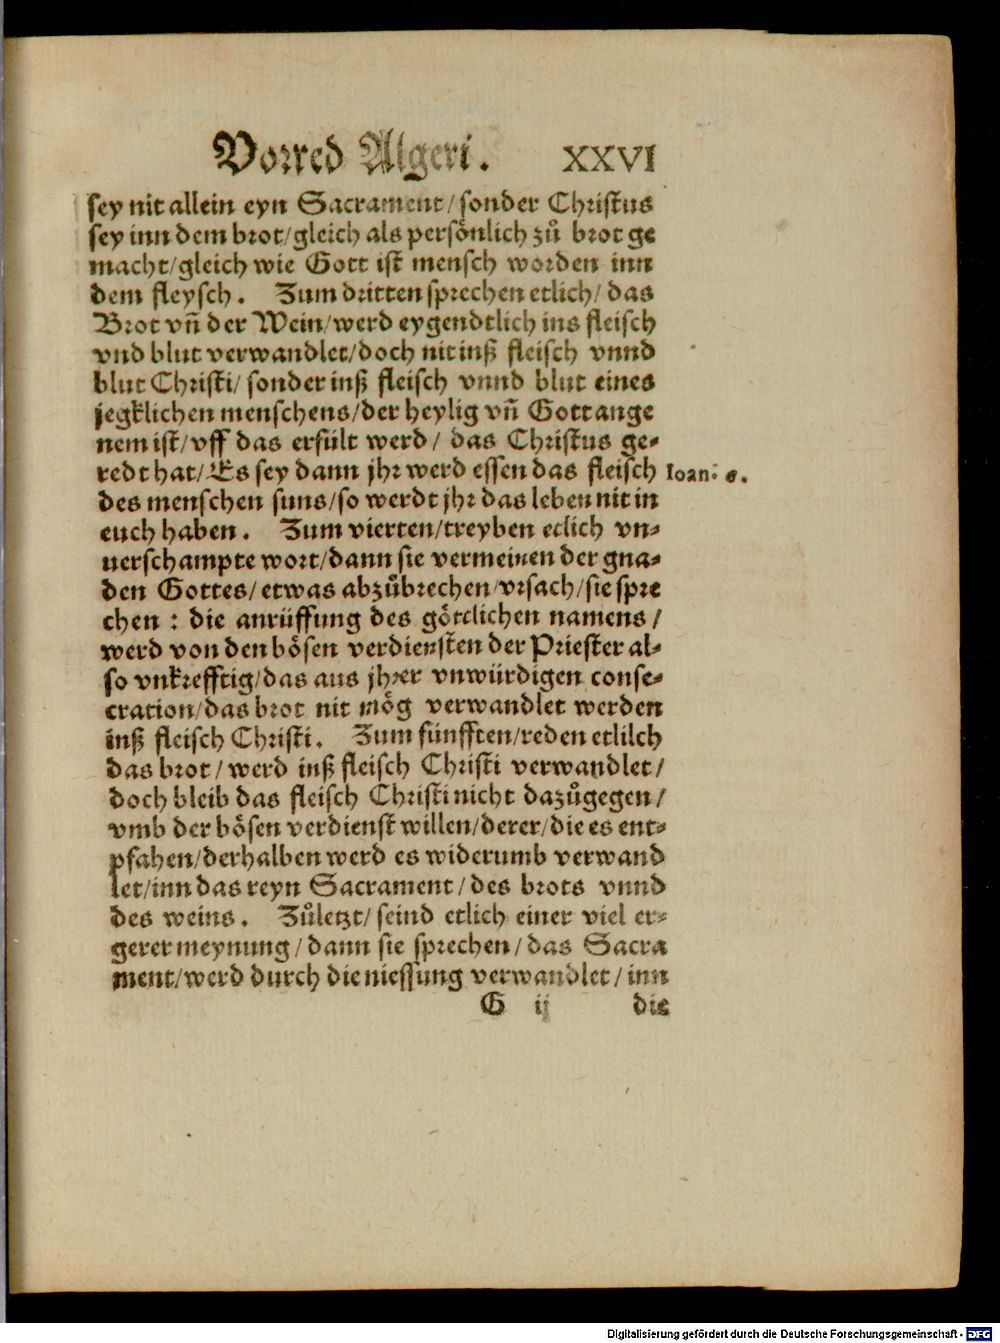 Vorred Algeri. XXVI
sey nit allein eyn Sacrament/sonder Christus
sey inn dem brot/gleich als persönlich zů brot ge
macht/gleich wie Gott ist mensch worden inn
dem fleysch. Zum dritten sprechen etlich/das
Brot vñ der Wein/werd eygendtlich ins fleisch
vnd blut verwandlet/doch nit inß fleisch vnnd
blut Christi/sonder inß fleisch vnnd blut eines
jegklichen menschens/der heylig vñ Gott ange
nem ist/vff das erfült werd/das Christus ge-
redt hat/Es sey dann jhr werd essen das fleisch
Ioan: 6.
des menschen suns/so werdt jhr das leben nit in
euch haben. Zum vierten/treyben etlich vn-
uerschampte wort/dann sie vermeinen der gna-
den Gottes/etwas abzůbrechen/vrsach/sie spre
chen: die anrüffung des göttlichen namens/
werd von den bösen verdiensten der Priester al-
so vnkrefftig/das aus jhrer vnwürdigen conse-
cration/das brot nit mög verwandlet werden
inß fleisch Christi. Zum fünfften/reden etlilch
das brot/werd inß fleisch Christi verwandlet/
doch bleib das fleisch Christi nicht dazůgegen/
vmb der bösen verdienst willen/derer/die es ent-
pfahen/derhalben werd es widerumb verwand
let/inn das reyn Sacrament/des brots vnnd
des weins. Zůletzt/seind etlich einer viel er-
gerer meynung/dann sie sprechen/das Sacra
ment/werd durch die niessung verwandlet/inn
G ij die
Digitalisierung gefördert durch die Deutsche Forschungsgemeinschaft - DFG